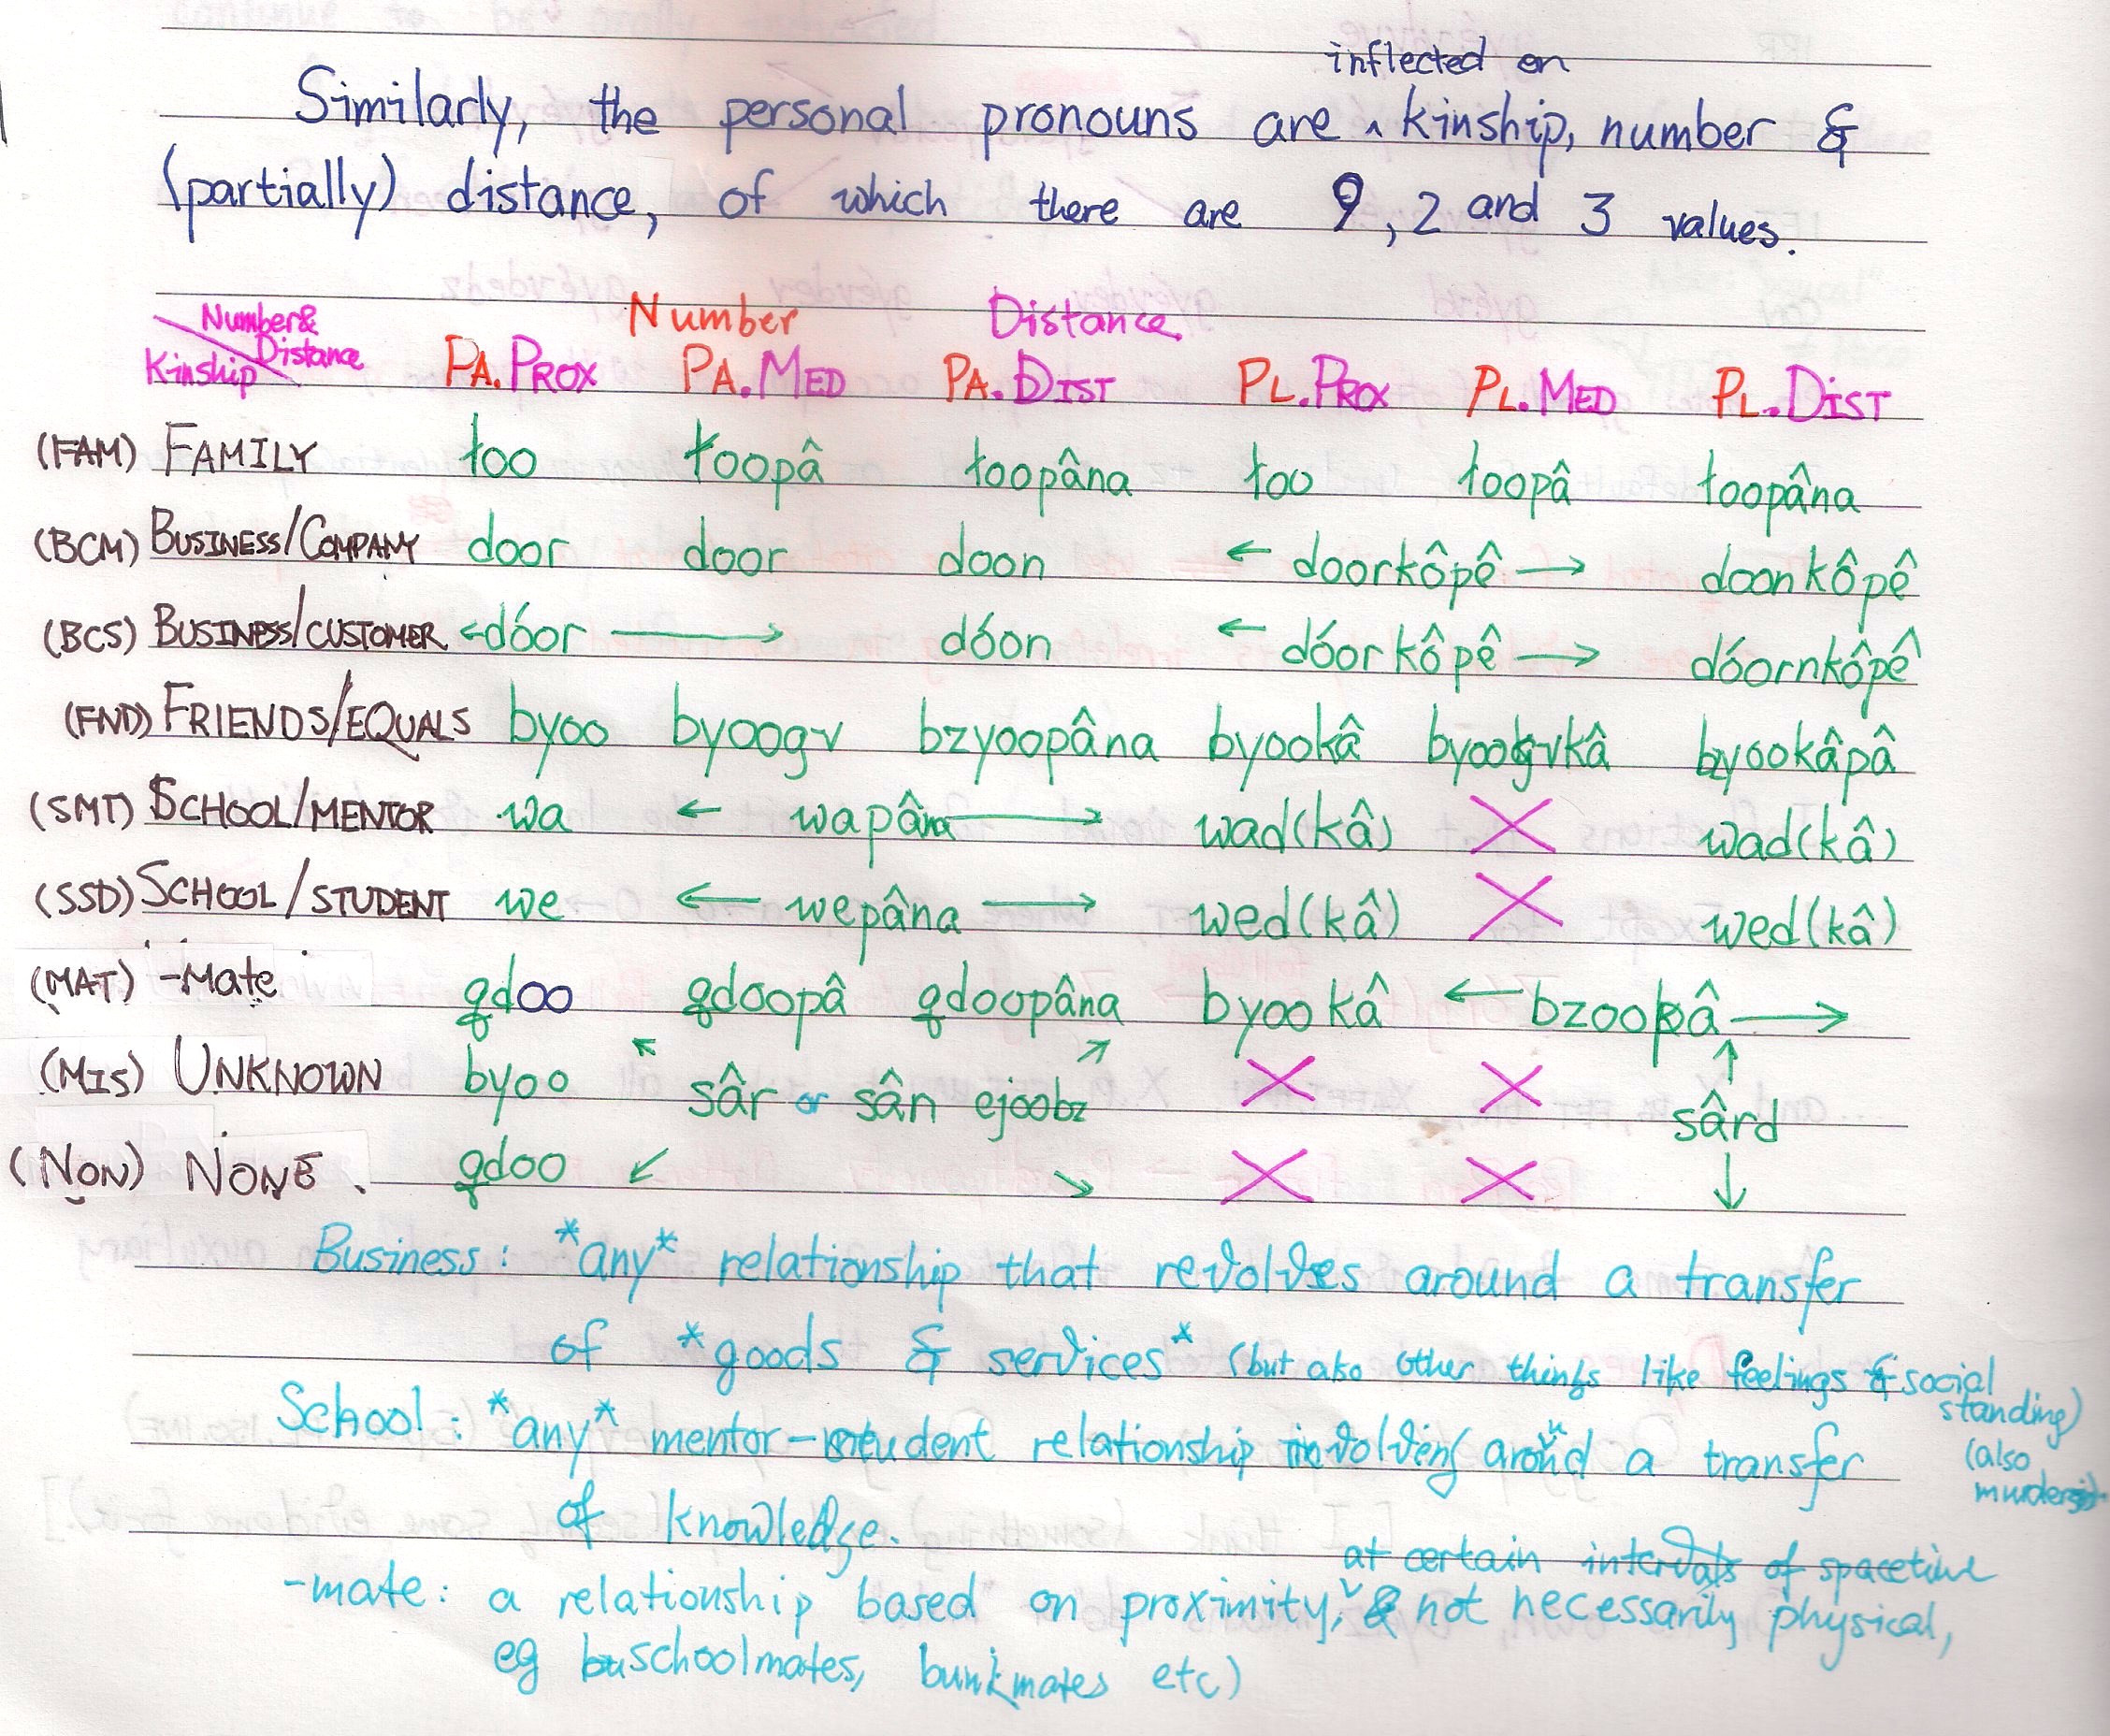 inflected on
Similarly, the personal pronouns are ^ kinship, number &
(partially) distance, of which there are 9, 2 and 3 values.
Number& Distance Kinship Number Distance
PA.PROX PA.MED PA.DIST PL.PROX PL.MED PL.DIST
(FAM) FAMILY too toopâ toopâna too toopâ toopâna
(BCM) BUSINESS/COMPANY door door doon ← doorkôpê → doonkôpê
(BCS) BUSINESS/CUSTOMER ← dóor → dóon ← dóorkôpê → dóornkôpê
(FND) FRIENDS/EQUALS byoo byoogv bzyoopâna byookâ byoogvkâ byookâpâ
(SMT) SCHOOL/MENTOR wa ← wapâna → wad(kâ) X wad(kâ)
(SSD) SCHOOL/STUDENT we ← wepâna → wed(kâ) X wed(kâ)
(MAT) -Mate gdoo gdoopâ gdoopâna byookâ ← bzoopâ →
(MIS) UNKNOWN byoo sâr or sân ejoobz X X sârd
(NON) NONE. gdoo X X
Business: *any* relationship that revolves around a transfer
of *goods & services* (but also other things like feelings & social
standing)
School: *any* mentor-student relationship involving around a transfer
(also
murders)
of knowledge.
at certain intervals of spacetime
-mate: a relationship based on proximity, & not necessarily physical,
eg schoolmates, bunkmates etc)